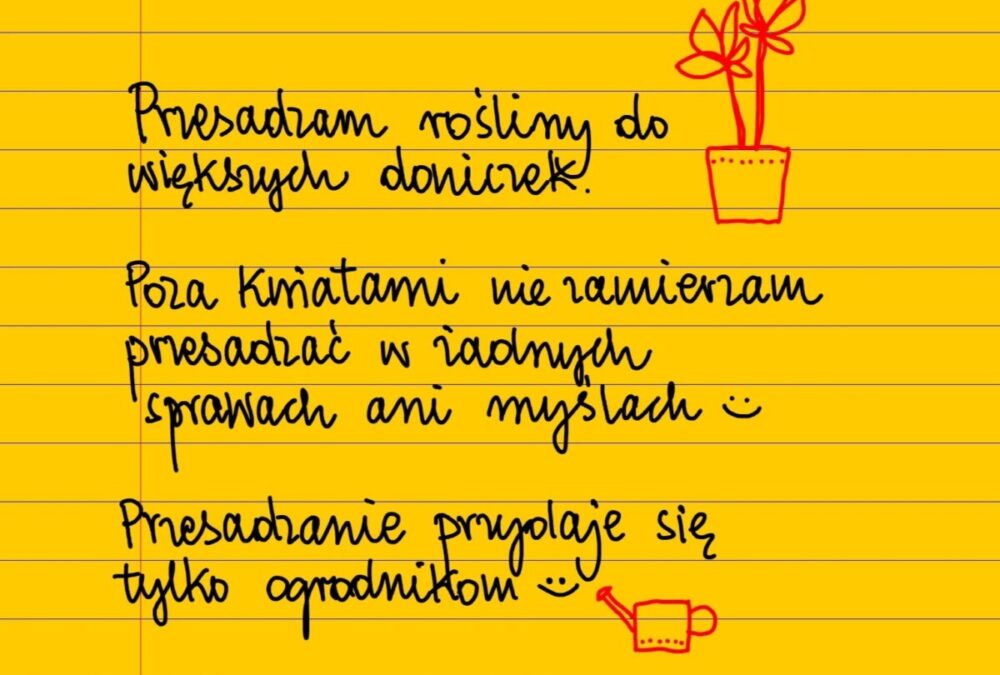 Przesadzam rośliny do
większych doniczek.
Poza kwiatami nie zamierzam
przesadzać w żadnych
sprawach ani myślach
Przesadzanie przydaje się
tylko ogrodnikom